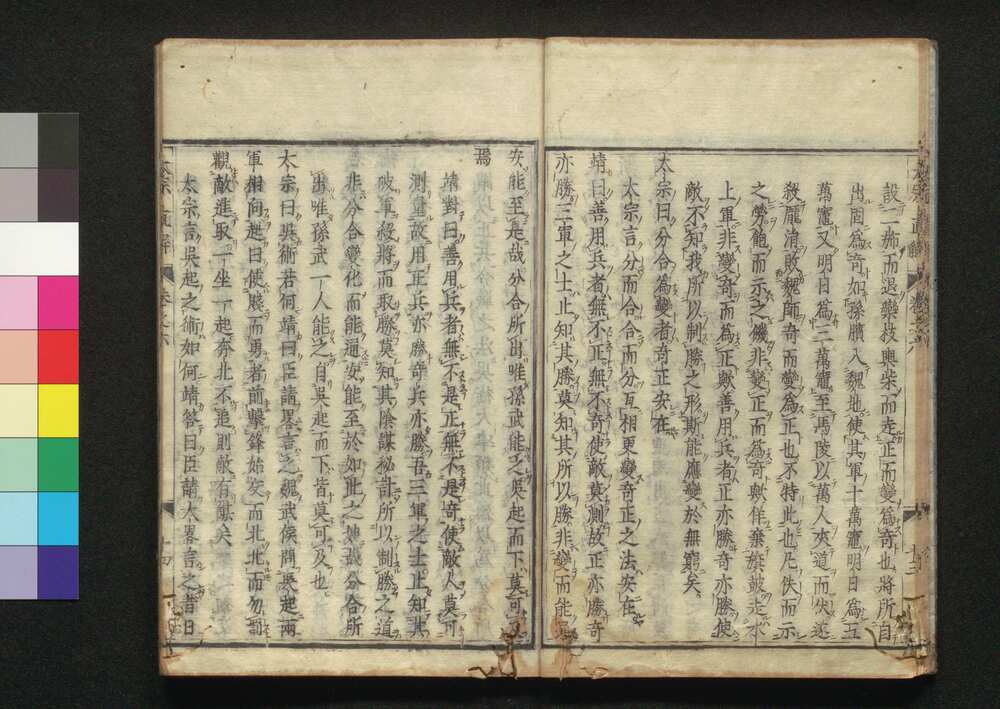 設二旆而退欒枝輿柴而走正而變爲奇也將所自
出爲奇如孫臏入魏地使其軍十萬竈明日爲五
萬竈又明日爲二萬竈至馬陵以萬人夾道而伏遂
殺龐涓敗魏師奇而變爲正也不特此也凡佚而示
之勞飽而示之饑非變正而爲奇歟佯棄旗鼓走
上軍非變奇而爲正歟善用兵者正亦勝奇亦勝使
敵不知我所以制勝之形斯能應變於無窮矣
太宗曰分合爲變者奇正安在
太宗言分而合合而分互相更變奇正之法安在
靖曰善用兵者無不正無不奇使敵莫測故正亦勝奇
亦勝三軍之士止知其勝莫知其所以勝非變而能
安能至是哉分合所出唯孫武能之吳起而下莫可
焉
靖對曰善用兵者無不是正無不是奇使敵人莫可
測量故用正兵亦勝奇兵亦勝吾三軍之士止知其
破軍殺將而取勝莫知其陰謀秘計所以制勝之道
非分合變化而能通安能至於如此之地哉分合所
出唯孫武一人能之自吳起而下皆莫可及也
太宗曰吳術若何靖曰臣請畧言之魏武侯問吳起兩
軍相向起曰使賤而勇者前擊鋒始交而北北而勿罰
觀敵進取一坐一起奔北不追則敵有謀矣
太宗言吳起之術如何靖答曰臣請大畧言之昔日